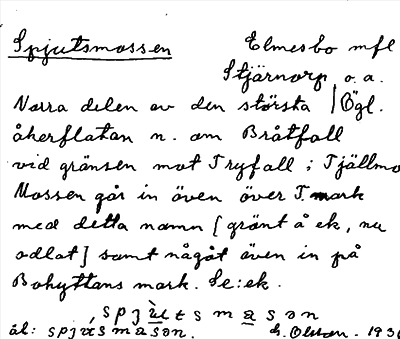 Spjutsmossen Elmesbo mfl
Stjärnorp o.a.
Norra delen av den största | Ögl.
åkerflatan n. om Bråtfall
vid gränsen mot Tryfall i Tjällmo
Mossen går in även över T. mark
med detta namn [gränt å ek, nu
odlat] samt något även in på
Bohyttans mark. Se: ek.
spʒùtsmasən
ål: spʒʉtsmasən. G. Olson. 1930